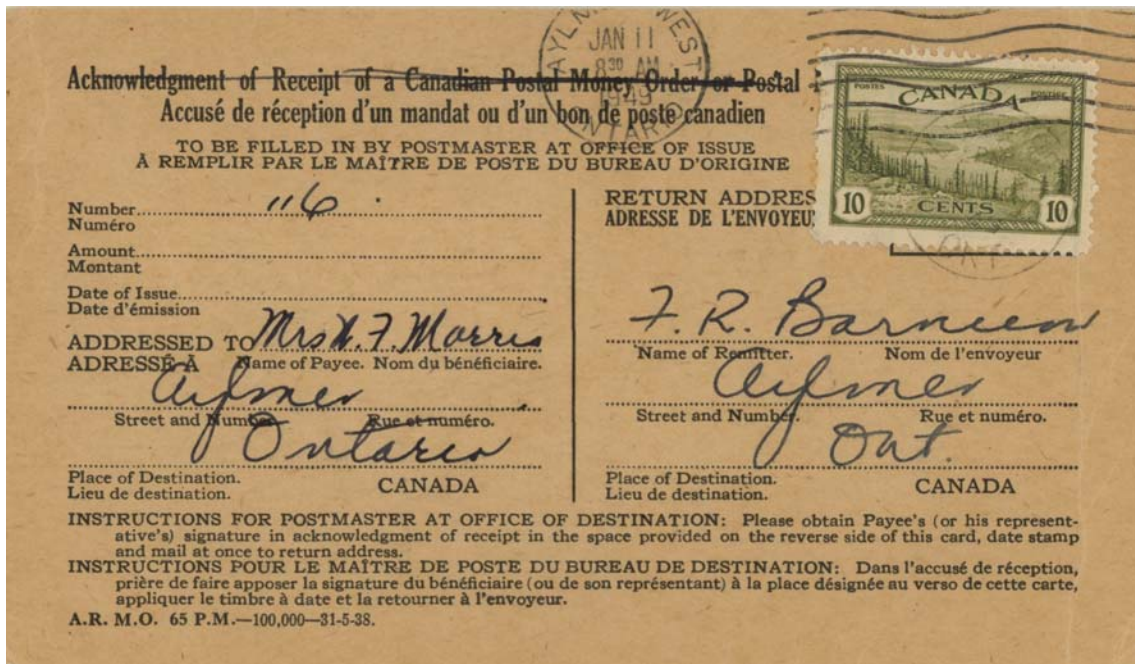 AYLMER WEST
JAN 11
8 30 AM
1949
ONTARIO
POSTES POSTAGE
CANADA
10 CENTS 10
ONT
Acknowledgment of Receipt of a Canadian Postal Money Order or Postal
Accusé de réception d'un mandat ou d'un bon de poste canadien
TO BE FILLED IN BY POSTMASTER AT OFFICE OF ISSUE
À REMPLIR PAR LE MAÎTRE DE POSTE DU BUREAU D'ORIGINE
Number 116
Numéro
Amount
Montant
Date of Issue
Date d'émission
ADDRESSED TO Mrs N. F. Morris
ADRESSÉ À Name of Payee. Nom du bénéficiaire.
Aylmer
Street and Number Rue et numéro.
Ontario
Place of Destination.
Lieu de destination. CANADA
RETURN ADDRES
ADRESSE DE L'ENVOYEU
F. R. Barneen
Name of Remitter. Nom de l'envoyeur
Aylmer
Street and Number. Rue et numéro.
Ont.
Place of Destination.
Lieu de destination. CANADA
INSTRUCTIONS FOR POSTMASTER AT OFFICE OF DESTINATION: Please obtain Payee's (or his represent-
ative's) signature in acknowledgment of receipt in the space provided on the reverse side of this card, date stamp
and mail at once to return address.
INSTRUCTIONS POUR LE MAÎTRE DE POSTE DU BUREAU DE DESTINATION: Dans l'accusé de réception,
prière de faire apposer la signature du bénéficiaire (ou de son représentant) à la place désignée au verso de cette carte,
appliquer le timbre à date et la retourner à l'envoyeur.
A.R. M.O. 65 P.M.—100,000—31-5-38.